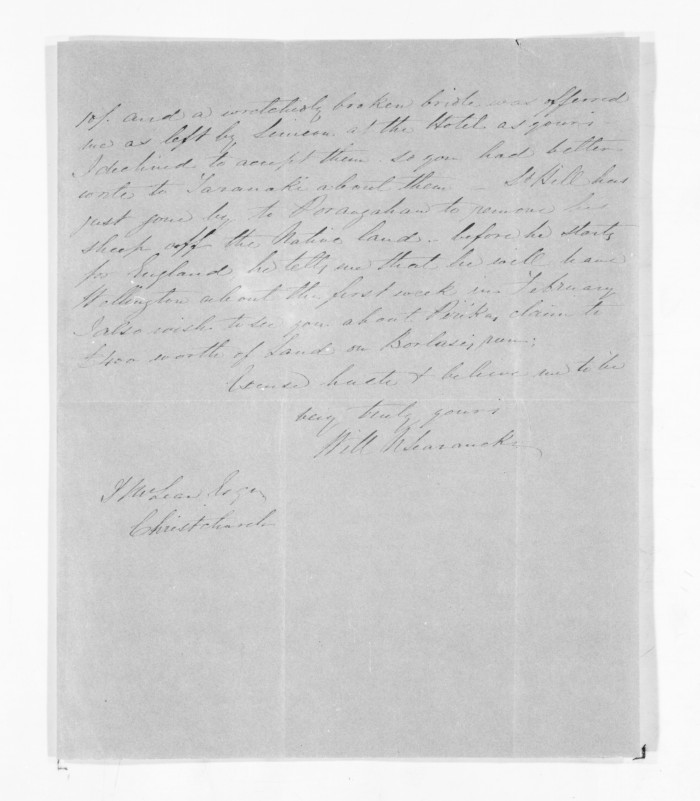 10/. and a wretchedly broken bridle was offered
me as left by Simeon at the Hotel as yours
I declined to accept them. so you had better
write to Taranaki about them – St Hill has
just gone by to Porangahau to remove his
sheep off the Native land. before he starts
for England he tells me that he will leave
Wellington about the first week in February
I also wish to see you about claim to
£400 worth of Land on run;
Excuse haste & believe me to be
very truly yours
Will N Searancke
McLean Esqre
Christchurch